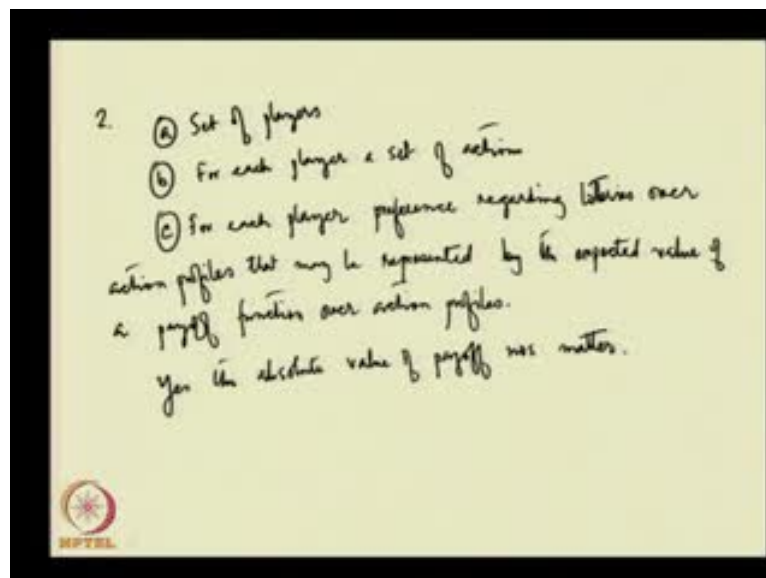 2. ⓐ Set of players
ⓑ For each player a set of actions
ⓒ For each player preference regarding lotteries over
action profiles that may be represented by the expected value of
a payoff function over action profiles.
Yes the absolute value of payoff now matters.
NPTEL